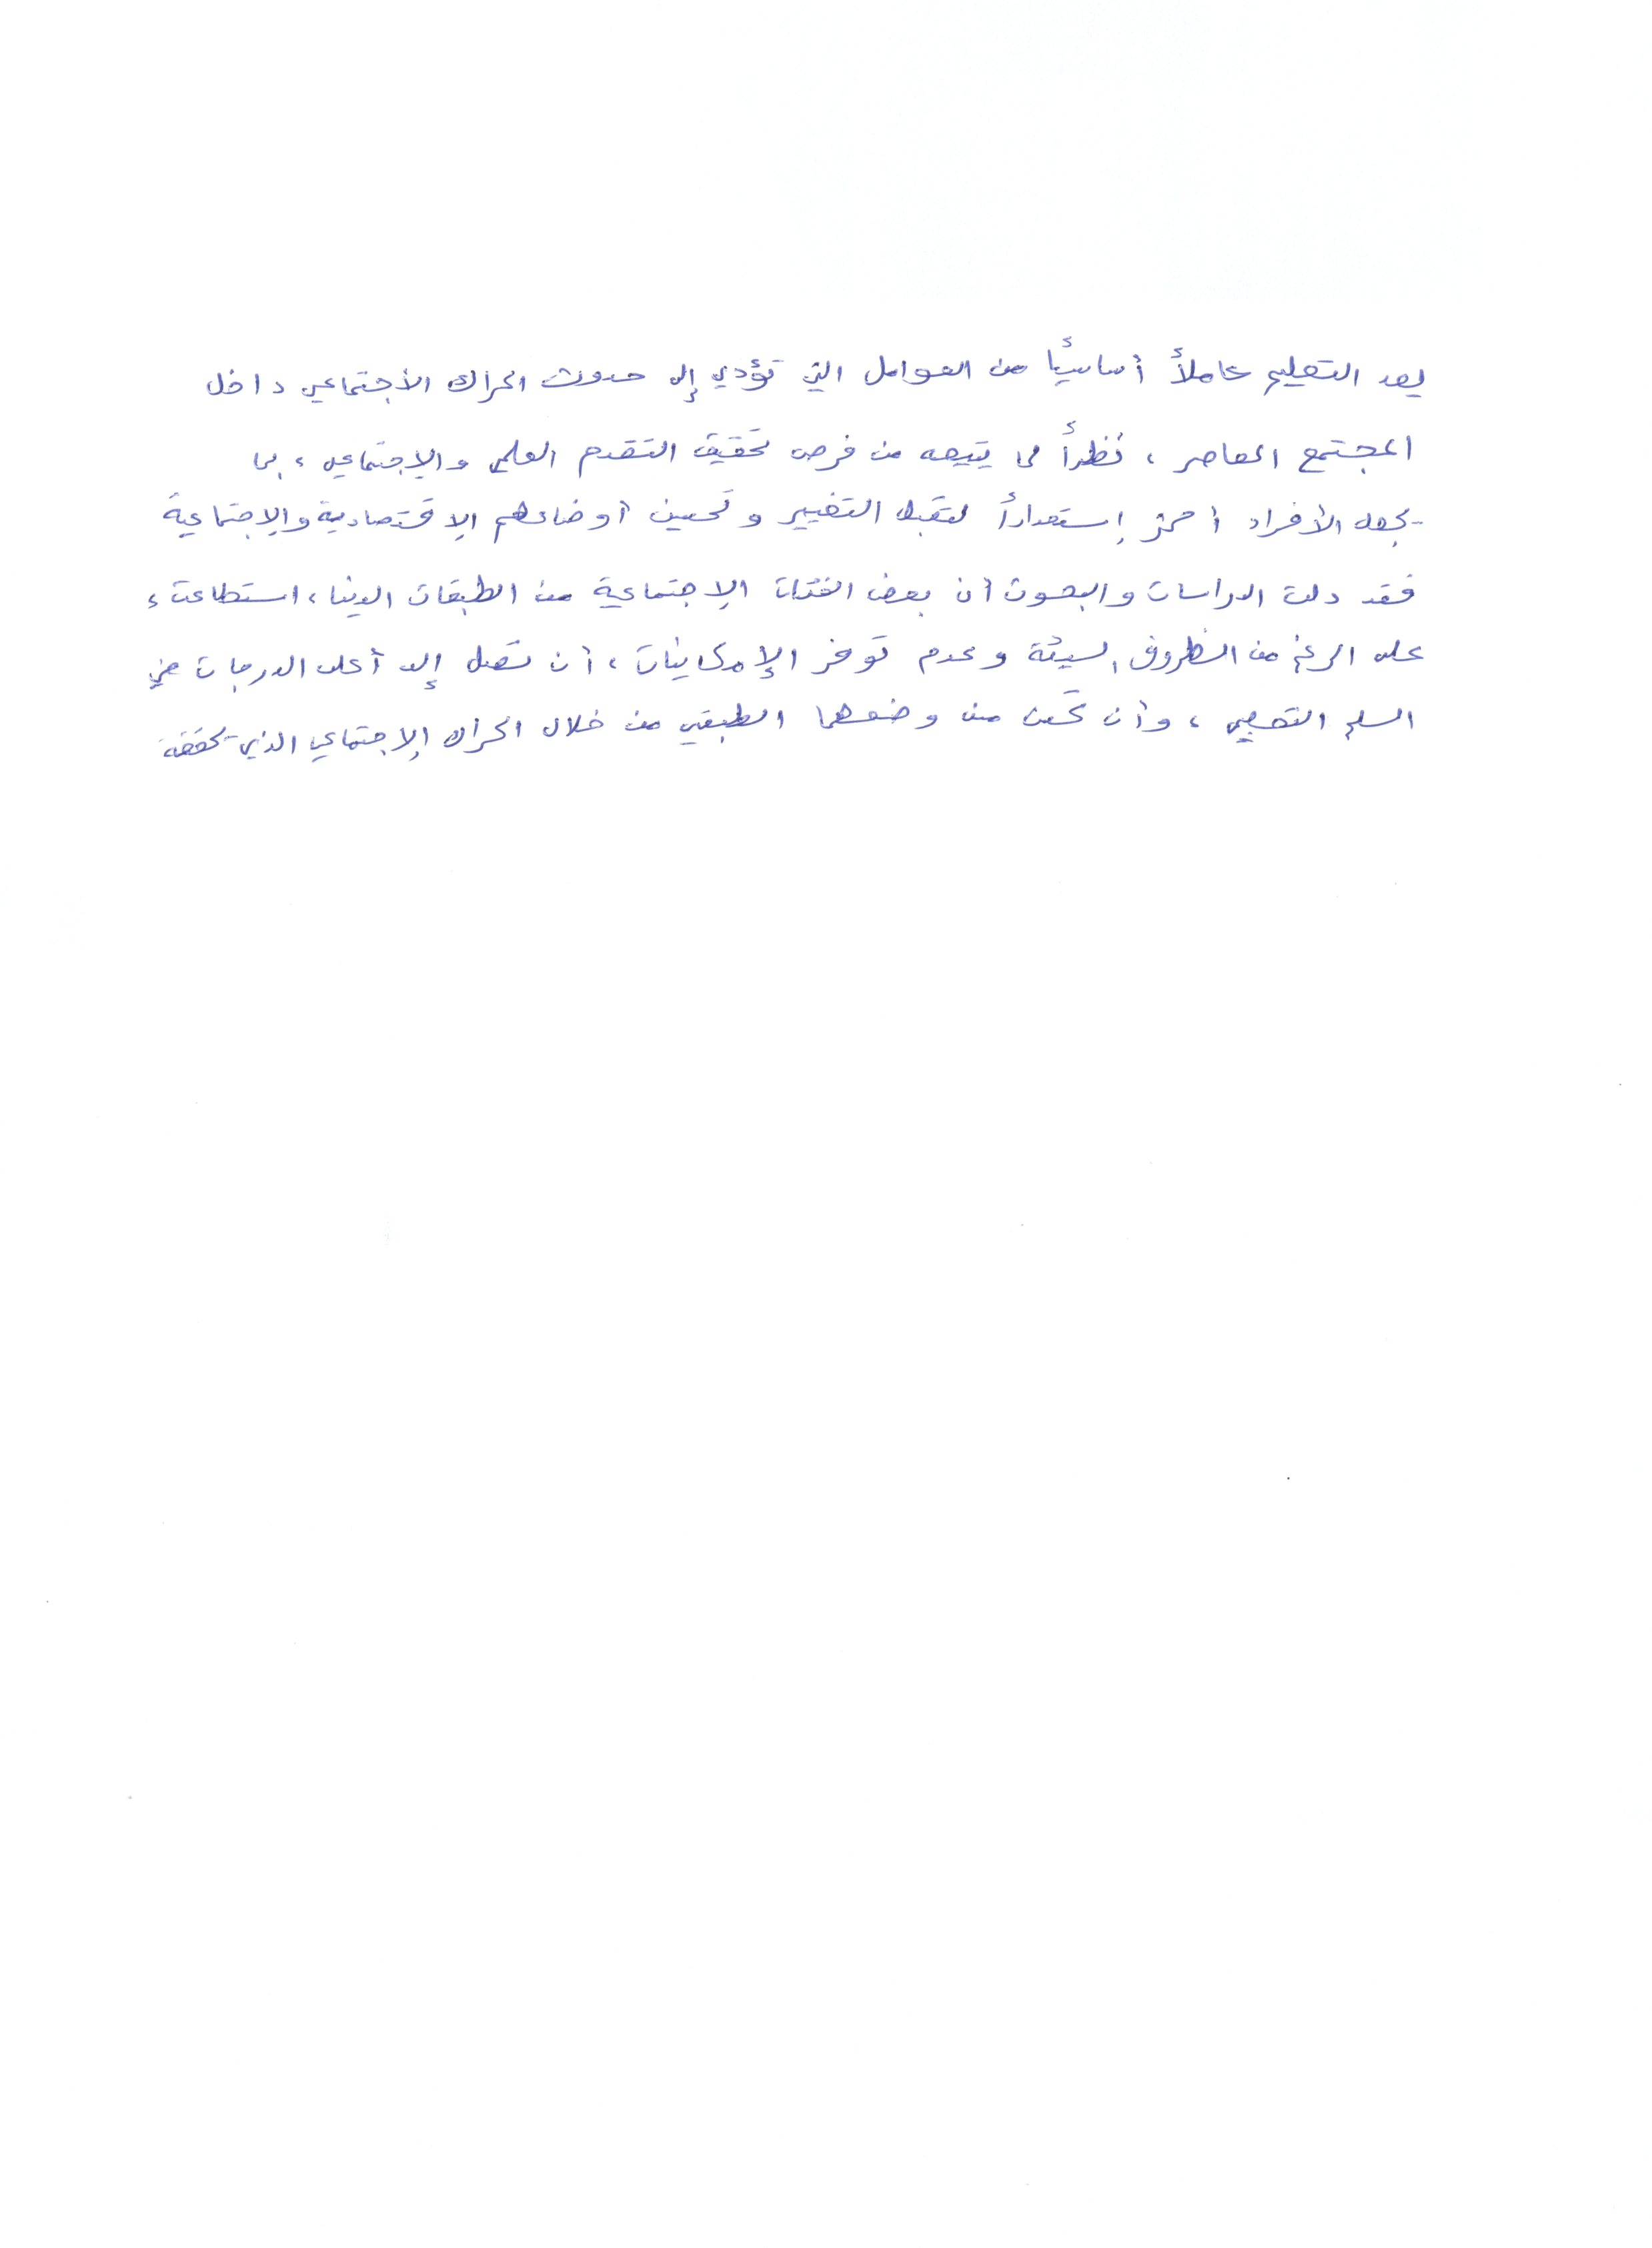 يعد التعليم عاملاً أساسياً من العوامل التي تؤدي إلى حدوث الحراك الأجتماعي داخل
المجتمع المعاصر ، نظراً لما يتيحه من فرص تحقيق التقدم العلمي والإجتماعي ، بما
يجعل الأفراد أكثر إستعداداً لتقبل التغيير وتحسين أوضاعهم الإقتصادية والإجتماعية
فقد دلت الدراسات والبحوث أن بعض الفئات الإجتماعية من الطبقات الدنيا ، استطاعت ،
على الرغم من الظروف السيئة وعدم توفر الإمكانيات ، أن تصل إلى أعلى الدرجات في
السلم التعليمي ، وأن تحسن من وضعها الطبقي من خلال الحراك الإجتماعي الذي تحققه